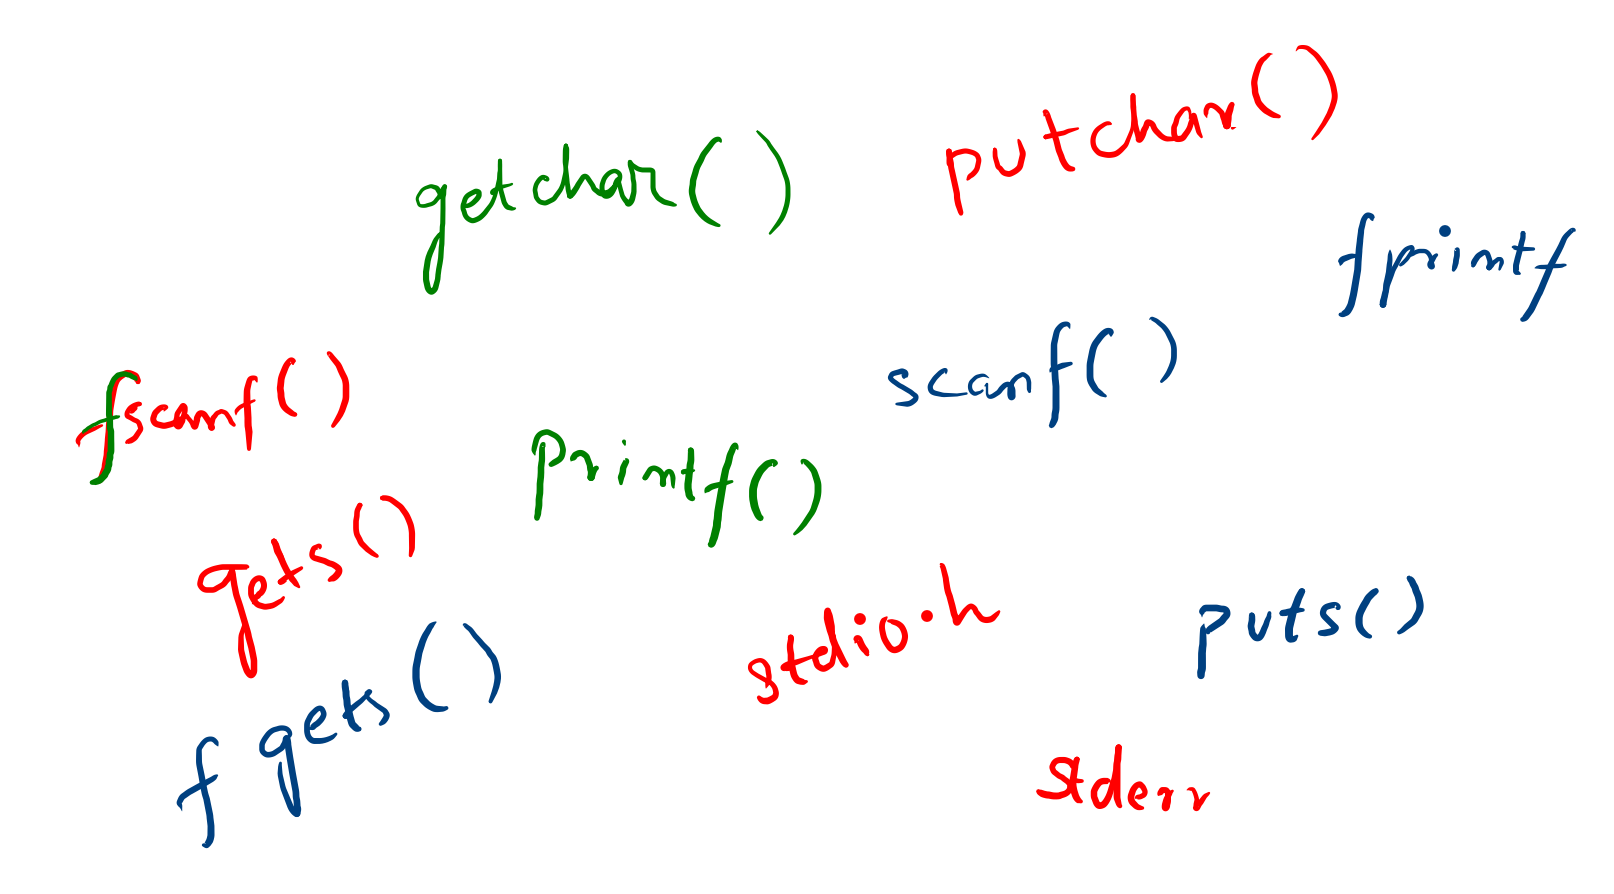 putchar()
getchar()
fprintf
scanf()
fscanf()
printf()
gets()
stdio.h
puts()
f gets()
stderr